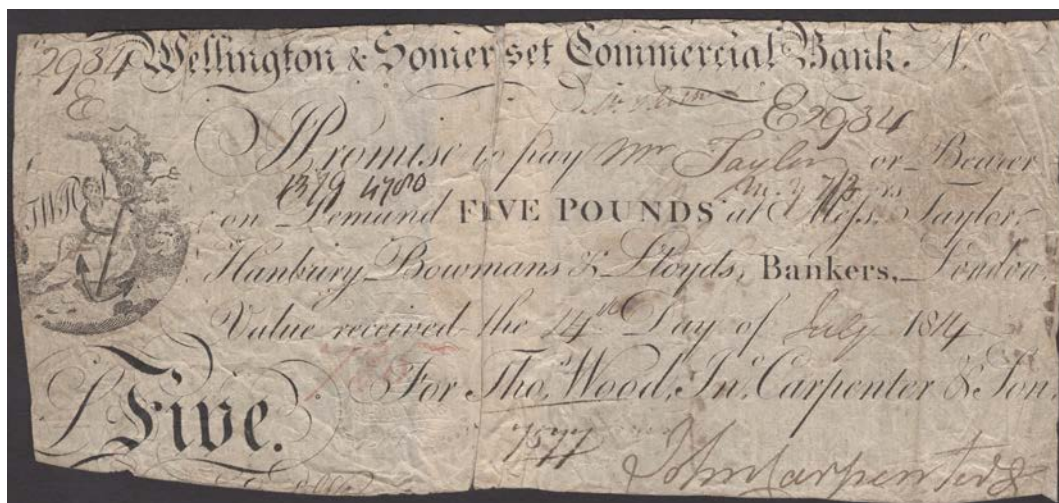 2934 Wellington & Somerset Commercial Bank. No
E
E2934
I Promise to pay Mr Taylor or Bearer
1379 4780
on Demand FIVE POUNDS at Messrs Taylor,
Hanbury Bowmans & Lloyds, Bankers, London
Value received the 14th Day of July 1814
For Thos. Wood, Jno. Carpenter & Son
Five.
John Carpenter